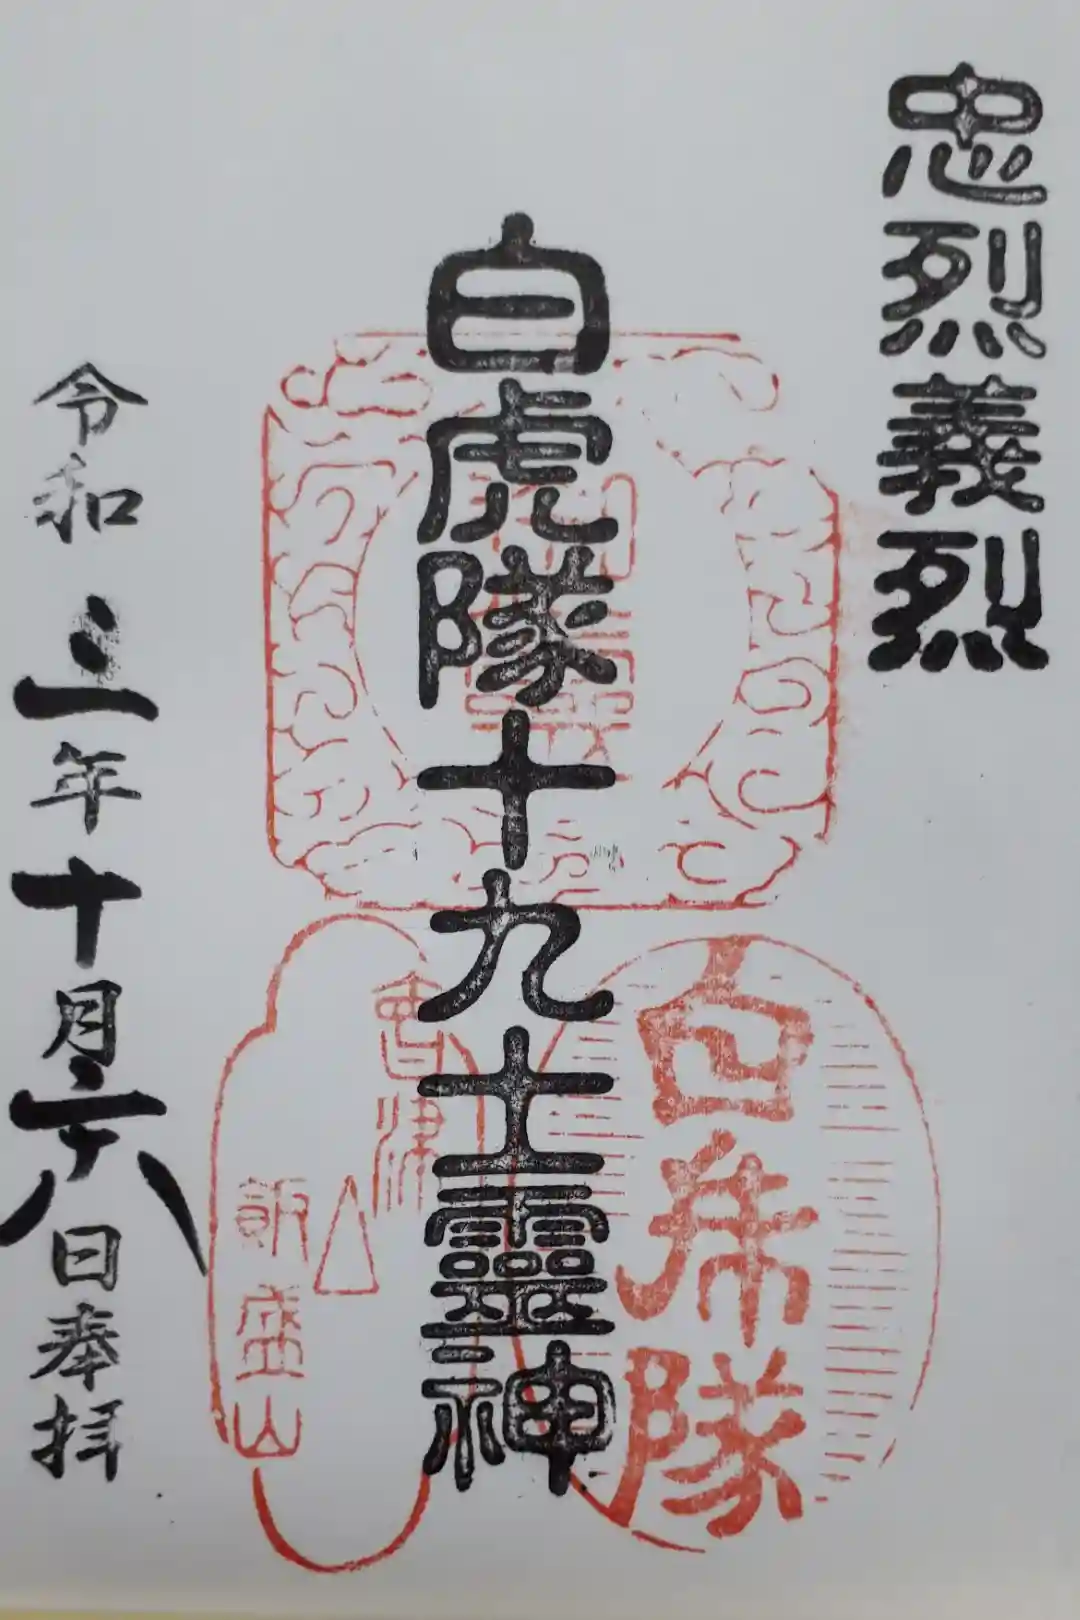 忠烈義烈
白虎隊十九士靈神
白虎隊
會津
飯盛山
令和三年十月六日奉拝